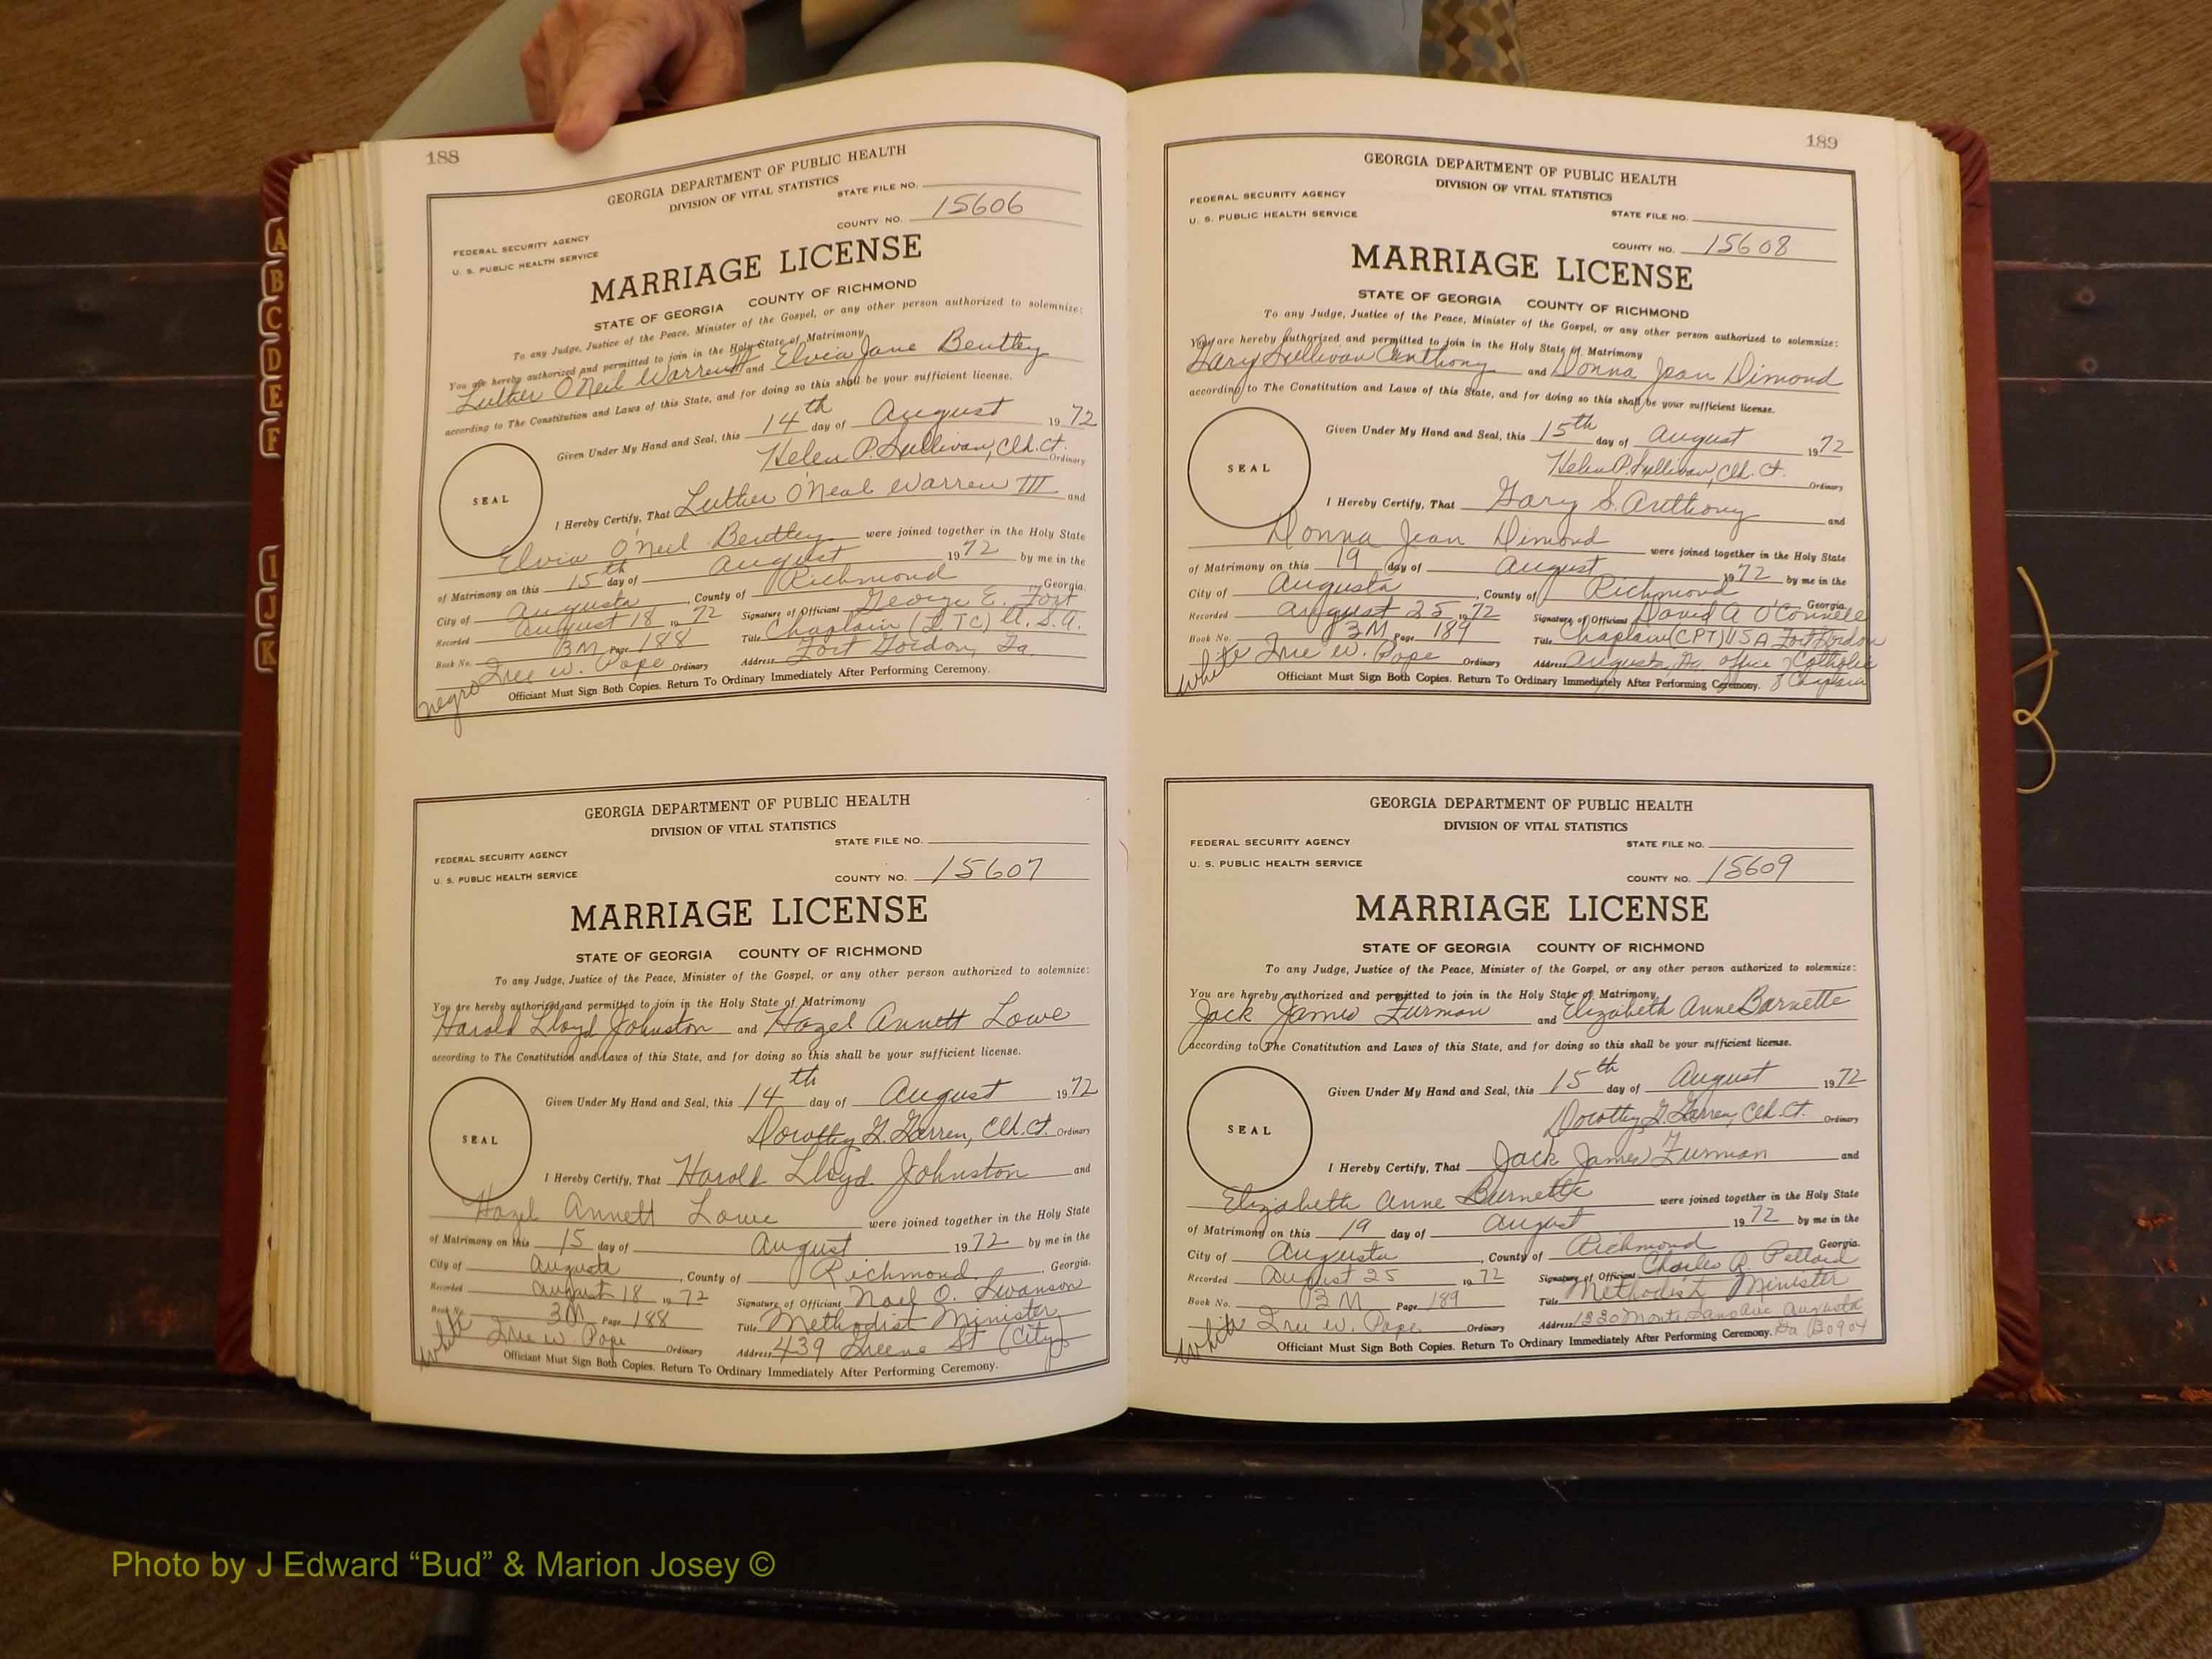 188
GEORGIA DEPARTMENT OF PUBLIC HEALTH
DIVISION OF VITAL STATISTICS
STATE FILE NO.
COUNTY NO. 15606
FEDERAL SECURITY AGENCY
U. S. PUBLIC HEALTH SERVICE
MARRIAGE LICENSE
STATE OF GEORGIA COUNTY OF RICHMOND
To any Judge, Justice of the Peace, Minister of the Gospel, or any other person authorized to solemnize:
You are hereby authorized and permitted to join in the Holy State of Matrimony
Luther O'Neil Warren III and Elvia Jane Bentley
according to The Constitution and Laws of this State, and for doing so this shall be your sufficient license.
Given Under My Hand and Seal, this 14th day of August 1972
Helen P. Sullivan, Clk. Ct. Ordinary
SEAL
I Hereby Certify, That Luther O'Neal Warren III and
Elvia O'Neil Bentley were joined together in the Holy State
of Matrimony on this 15th day of August 1972 by me in the
City of Augusta, County of Richmond Georgia.
Recorded August 18 1972 Signature of Officiant George E. Fort
Book No. 3M Page 188 Title Chaplain (LTC) U.S.A.
Iree W. Pope Ordinary Address Fort Gordon, Ga.
negro Officiant Must Sign Both Copies. Return To Ordinary Immediately After Performing Ceremony.
GEORGIA DEPARTMENT OF PUBLIC HEALTH
DIVISION OF VITAL STATISTICS
STATE FILE NO.
FEDERAL SECURITY AGENCY
U. S. PUBLIC HEALTH SERVICE
COUNTY NO. 15607
MARRIAGE LICENSE
STATE OF GEORGIA COUNTY OF RICHMOND
To any Judge, Justice of the Peace, Minister of the Gospel, or any other person authorized to solemnize:
You are hereby authorized and permitted to join in the Holy State of Matrimony
Harold Lloyd Johnston and Hazel Annett Lowe
according to The Constitution and Laws of this State, and for doing so this shall be your sufficient license.
Given Under My Hand and Seal, this 14th day of August 1972
Dorothy G. Garren, Clk. Ct. Ordinary
SEAL
I Hereby Certify, That Harold Lloyd Johnston and
Hazel Annett Lowe were joined together in the Holy State
of Matrimony on this 15 day of August 1972 by me in the
City of Augusta, County of Richmond, Georgia.
Recorded August 18 1972 Signature of Officiant Noel O. Swanson
Book No. 3M Page 188 Title Methodist Minister
Iree W. Pope Ordinary Address 439 Greene St (City)
white Officiant Must Sign Both Copies. Return To Ordinary Immediately After Performing Ceremony.
189
GEORGIA DEPARTMENT OF PUBLIC HEALTH
DIVISION OF VITAL STATISTICS
FEDERAL SECURITY AGENCY
U. S. PUBLIC HEALTH SERVICE
STATE FILE NO.
COUNTY NO. 15608
MARRIAGE LICENSE
STATE OF GEORGIA COUNTY OF RICHMOND
To any Judge, Justice of the Peace, Minister of the Gospel, or any other person authorized to solemnize:
You are hereby authorized and permitted to join in the Holy State of Matrimony
Gary Sullivan Anthony and Donna Jean Dimond
according to The Constitution and Laws of this State, and for doing so this shall be your sufficient license.
Given Under My Hand and Seal, this 15th day of August 1972
Helen P. Sullivan, Clk. Ct. Ordinary
SEAL
I Hereby Certify, That Gary S. Anthony and
Donna Jean Dimond were joined together in the Holy State
of Matrimony on this 19 day of August 1972 by me in the
City of Augusta, County of Richmond Georgia.
Recorded August 25, 1972 Signature of Officiant David A O'Connell
Book No. 3M Page 189 Title Chaplain (CPT) USA Fort Gordon
Iree W. Pope Ordinary Address Augusta, Ga office of Catholic Chaplain
white Officiant Must Sign Both Copies. Return To Ordinary Immediately After Performing Ceremony.
GEORGIA DEPARTMENT OF PUBLIC HEALTH
DIVISION OF VITAL STATISTICS
FEDERAL SECURITY AGENCY
STATE FILE NO.
U. S. PUBLIC HEALTH SERVICE
COUNTY NO. 15609
MARRIAGE LICENSE
STATE OF GEORGIA COUNTY OF RICHMOND
To any Judge, Justice of the Peace, Minister of the Gospel, or any other person authorized to solemnize:
You are hereby authorized and permitted to join in the Holy State of Matrimony
Jack James Furman and Elizabeth Anne Barnette
according to The Constitution and Laws of this State, and for doing so this shall be your sufficient license.
Given Under My Hand and Seal, this 15th day of August 1972
Dorothy G. Garren, Clk. Ct. Ordinary
SEAL
I Hereby Certify, That Jack James Furman and
Elizabeth Anne Burnette were joined together in the Holy State
of Matrimony on this 19 day of August 1972 by me in the
City of Augusta, County of Richmond Georgia.
Recorded August 25 1972 Signature of Officiant Charles R.
Book No. 3M Page 189 Title Methodist Minister
Iree W. Pope Ordinary Address 1330 Monte Sano Ave Augusta
white Officiant Must Sign Both Copies. Return To Ordinary Immediately After Performing Ceremony. Ga 30904
A
B
C
D
E
F
I
J
K
Photo by J Edward “Bud” & Marion Josey ©